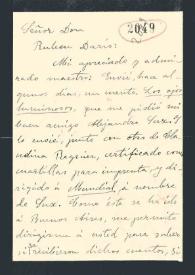 2049
Señor Don
Ruben Darío:
Mi apreciado y admi-
rado maestro: Envié, hace al-
gunos días, un cuento, Los ojos
luminosos, que me pidió mi
buen amigo Alejandro Sux. Y
lo envié, junto con otro de Clau-
dina Regnier, certificado con
cuartillas para imprenta, y di-
rigido á Mundial, á nombre
de Sux. Como éste se ha ido
á Buenos Aires, me permito
dirigirme á usted para saber
si se recibieron dichos cuentos. Si